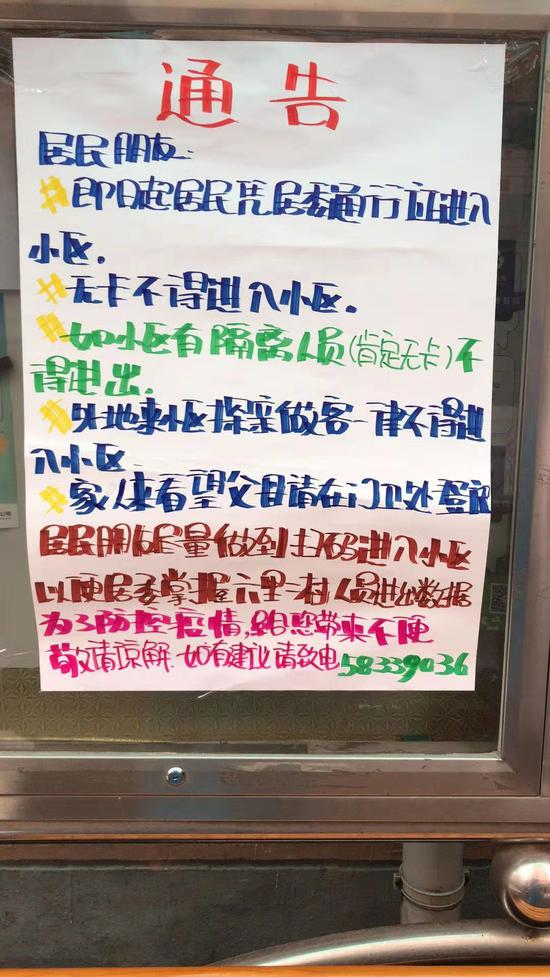 通告
居民朋友:
#即日起居民凭居委通行证进入
小区.
#无卡不得进入小区.
#如小区有隔离人员(肯定无卡)不
得进出.
#外地来小区探亲做客一律不得进
入小区
#家人来看望父母请在门卫处登记
居民朋友尽量做到扫码进入小区
以便居委掌握六里一村人员进出数据
为了防控疫情,给您带来不便
敬请谅解.如有建议请致电58339036